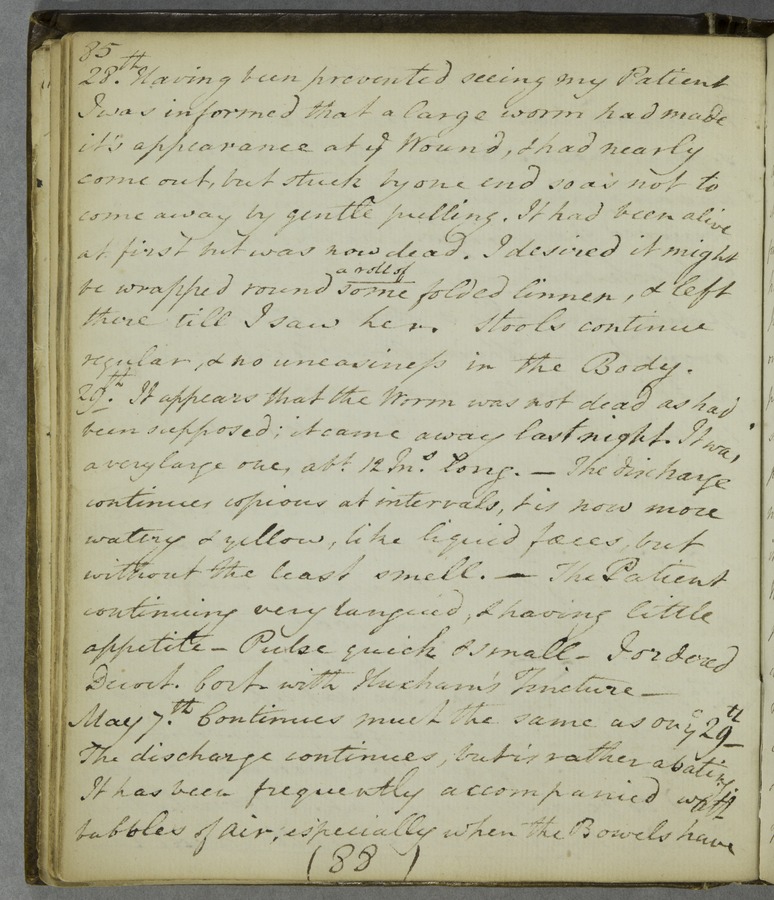 85
28.th Having been prevented seeing my Patient
I was informed that a large worm had made
it's appearance at ye Wound, & had nearly
come out, but stuck by one end so as not to
come away by gentle pulling. It had been alive
at first but was now dead. I desired it might
a roll of
be wrapped round some folded linnen, & left
there till I saw her. Stools continue
regular, & no uneasiness in the Body.
29.th It appears that the Worm was not dead as had
been supposed; it came away last night. It was
a very large one, abt. 12 Ins. Long. — The discharge
continues copious at intervals, & is now more
watery & yellow, like liquid fæces, but
without the least smell. — The Patient
continuing very languid, & having little
appetite – Pulse quick & small – I ordered
Decoct. Cort. with Huxham's Tincture —
May 7.th Continues much the same as on ye 29th
The discharge continues, but is rather abating.
It has been frequently accompanied with
bubbles of air, especially when the Bowels have
(88)